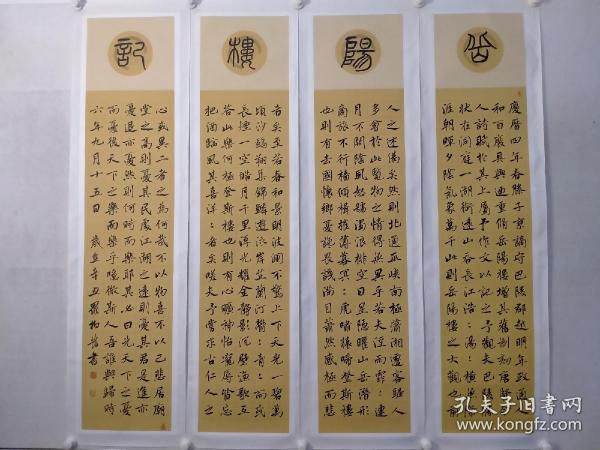 岳
慶曆四年春滕子京謫守巴陵郡越明年政通人
和百廢具興迺重脩岳陽樓增其舊制刻唐賢今
人詩賦於其上屬予作文以記之予觀夫巴陵勝
狀在洞庭一湖銜遠山吞長江浩:湯:橫無際
涯朝暉夕陰氣象萬千此則岳陽樓之大觀也前
陽
人之述備矣然則北通巫峽南極瀟湘遷客騷人
多會於此覽物之情得無異乎若夫淫雨霏:連
月不開陰風怒號濁浪排空日星隱曜山岳潛形
商旅不行檣傾楫摧薄暮冥:虎嘯猿啼登斯樓
也則有去國懷鄉憂讒畏譏滿目蕭然感極而悲
樓
者矣至若春和景明波瀾不驚上下天光一碧萬
頃沙鷗翔集錦鱗游泳岸芷蘭汀鬱:青:而或
長煙一空皓月千里浮光躍金靜影沉璧漁歌互
答此樂何極登斯樓也則有心曠神怡寵辱皆忘
把酒臨風其喜洋:者矣嗟夫予嘗求古仁人之
記
心或異二者之為何哉不以物喜不以己悲居廟
堂之高則憂其民處江湖之遠則憂其君是進亦
憂退亦憂然則何時而樂耶其必曰先天下之憂
而憂後天下之樂而樂乎噫微斯人吾誰與歸時
六年九月十五日 歲在辛丑 書
孔夫子旧书网
www.kongfz.com